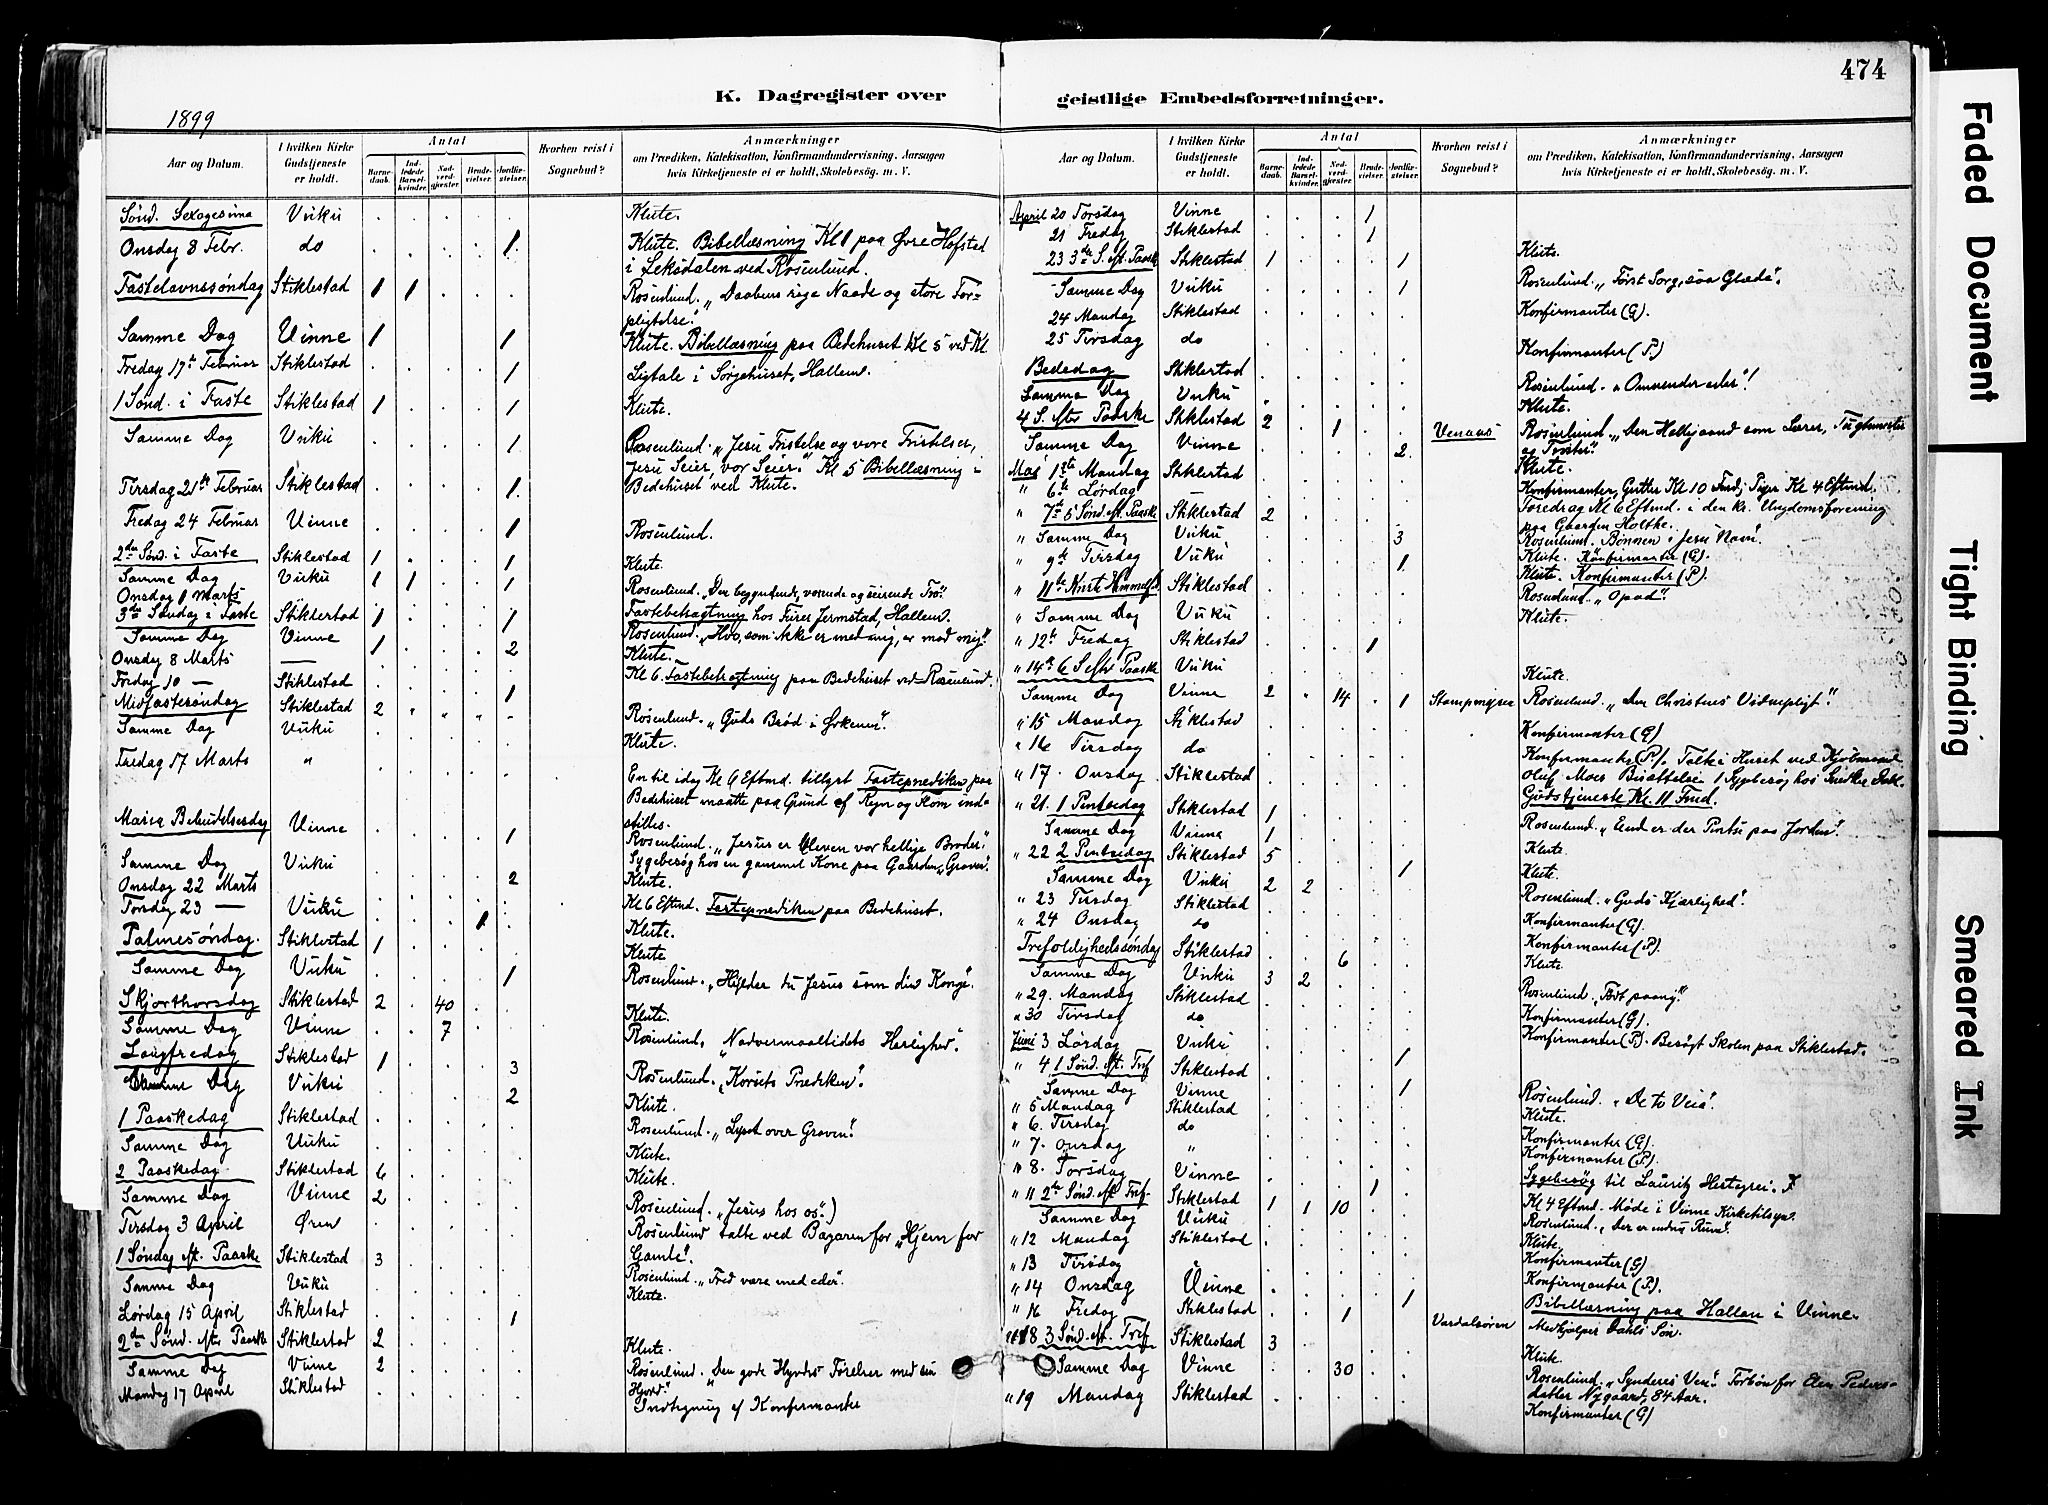 474
K. Dagregister over geistlige Embedsforretninger.
1899
Aar og Datum.
I hvilken Kirke Gudstjeneste er holdt.
Antal
Barnedaab.
Indledede Barselkvinder.
Nadverdgjester.
Brudevielser.
Jordfæstelser.
Hvorhen reist i Sognebud?
Anmærkninger
om Prædiken, Katekisation, Konfirmandundervisning, Aarsagen
hvis Kirketjeneste ei er holdt, Skolebesøg. m. V.
Sønd. Sexagesima Vuku . . . . . Klüte.
Onsdag 8 Febr. do . . . . 1 Klüte. Bibellæsning Kl 1 paa Øvre Hofstad
i Leksdalen ved Rosenlund.
Fastelavnssøndag Stiklestad 1 1 . . . Rosenlund. „Daabens rige Naade og store For-
pligtelse."
Samme Dag Vinne 1 . . . 1 Klüte. Bibellæsning paa Bedehuset Kl 5 ved Kl.
Fredag 17de Februar Stiklestad . . . . 1 Ligtale i Sørgehuset, Hallem.
1 Sønd. i Faste Stiklestad 1 . . . 1 Klüte.
Samme Dag Vuku . . . . 1 Rosenlund. „Jesu Fristelse og vore Fristelser,
Jesu Seier, vor Seier." Kl 5 Bibellæsning i
Tirsdag 21de Februar Stiklestad . . . . 1 Bedehuset ved Klüte.
Fredag 24 Februar Vinne . . . . 1 Rosenlund.
2den Sønd. i Faste Stiklestad 1 . . . 1 Klüte.
Samme Dag Vuku 1 1 . . 1 Rosenlund. „Den begyndende, voxende og seirende Tro."
Onsdag 1 Marts Fastebetragtning hos Furer Jermstad, Hallem.
3die Søndag i Faste Stiklestad 1 . . . 1 Rosenlund. „Hvo, som ikke er med mig, er mod mig."
Samme Dag Vinne 1 . . . 2 Klüte.
Onsdag 8 Marts — Kl 6. Fastebetragtning paa Bedehuset ved Rosenlund.
Fredag 10 — Stiklestad . . . . 1
Midfastesøndag Stiklestad 2 . . . . Rosenlund. „Guds Brød i Ørkenen."
Samme Dag Vuku . . . . . Klüte.
Fredag 17 Marts " En til idag Kl 6 Eftmd. tillyst Fasteprædiken paa
Bedehuset maatte paa Grund af Regn og Storm ind-
stilles.
Maria Bebudelsesdag Vinne . . . . 1 Rosenlund. „Jesus er bleven vor hellige Broder."
Sygebesøg hos en gammel Kone paa Gaarden „Graven".
Samme Dag Vuku . . . . 2 Klüte.
Onsdag 22 Marts Kl 6 Eftmd. Fasteprædiken paa Bedehuset.
Torsdag 23 — Vuku . . . 1 . Klüte.
Palmesøndag. Stiklestad 1 . . . . Klüte
Samme Dag Vuku . . . . 1 Rosenlund. „Hylder du Jesus som din Konge".
Skjærthorsdag Stiklestad 2 . 40 . . Klüte.
Samme Dag Vinne . . 7 . . Rosenlund. „Nadvermaaltidets Herlighed".
Langfredag Stiklestad 1 . . . 3 Rosenlund. „Korsets Prædiken".
Samme Dag Vuku . . . . 2 Klüte.
1 Paaskedag Stiklestad . . . . . Rosenlund. „Lyset over Graven".
Samme Dag Vuku . . . . . Klüte.
2 Paaskedag. Stiklestad 6 . . . . Klüte.
Samme Dag Vinne 2 . . . . Rosenlund. „Jesus hos os".)
Tirsdag 3 April Øren . . . . . Rosenlund talte ved Bazaren for „Hjem for
Gamle".
1 Søndag eft. Paaske Stiklestad 3 . . . . Rosenlund. „Fred være med eder".
Samme Dag Vuku . . . . . Klüte.
Lørdag 15 April Stiklestad . . . . 1
2den Sønd. efter Paaske Stiklestad 2 . . . . Klüte.
Samme Dag Vinne 2 . . . . Rosenlund. „Den gode Hyrdes Færelser med sin
Hjord."
Mandag 17 April Stiklestad Indtegning af Konfirmanter
Aar og Datum.
I hvilken Kirke Gudstjeneste er holdt.
Antal
Barnedaab.
Indledede Barselkvinder.
Nadverdgjester.
Brudevielser.
Jordfæstelser.
Hvorhen reist i Sognebud?
Anmærkninger
om Prædiken, Katekisation, Konfirmandundervisning, Aarsagen
hvis Kirketjeneste ei er holdt, Skolebesøg. m. V.
April 20 Torsdag Vinne . . . 1 .
21 Fredag Stiklestad . . . 1 .
23 3die S. eft. Paaske Stiklestad 1 . . . 1 Klüte.
Samme Dag Vuku . . . . 1 Rosenlund. „Først Sorg, saa Glæde".
24 Mandag Stiklestad Konfirmanter (G).
25 Tirsdag do Konfirmanter (P.)
Bededag Stiklestad . . . . . Rosenlund. „Omvender eder"!
Samme Dag Vuku . . . . . Klüte.
4 S. efter Paaske Stiklestad 2 . 1 . . Venaas Rosenlund. „Den Helligaand som Lærer, Tugtemester
og Trøster".
Samme Dag Vinne . . . . 2 Klüte.
Mai 1ste Mandag Stiklestad Konfirmanter, Gutter Kl 10 Fmd; Piger Kl 4 Eftmd.
" 6te Lørdag Foredrag Kl 6 Eftmd. i den kr. Ungdomsforening
paa Gaarden Holthe.
" 7de 5 Sønd. eft. Paaske Stiklestad 2 . . . . Rosenlund. „Bønnen i Jesu Navn".
" Samme Dag Vuku . . . . 3 Klüte. Konfirmanter (G).
" 9de Tirsdag Vuku . . . . 1 Klüte. Konfirmanter (P).
" 11te Kristi Himmelf. Stiklestad . . . . . Rosenlund. „Opad".
" Samme Dag Vuku . . . . . Klüte.
" 12te Fredag Stiklestad . . . 1 .
" 14de 6 S. eftr Paaske Vuku . . . . . Klüte.
Samme Dag Vinne 2 " 14 . 1 Rosenlund. „Den Christnes Vidnepligt".
" 15 Mandag Stiklestad Konfirmanter (G)
" 16 Tirsdag do Konfirmanter (P.)
" 17 Onsdag Stiklestad Gudstjeneste Kl. 11 Fmd.
" 21. 1 Pintsedag Stiklestad 1 . . . . Rosenlund. „End er der Pintse paa Jorden".
Samme Dag Vinne 1 . . . . Klüte.
" 22 2 Pintsedag Stiklestad 5 . . . 1 Klüte.
Samme Dag Vuku 2 2 . . . Rosenlund. „Guds Kjærlighed".
" 23 Tirsdag Stiklestad Konfirmanter (G).
" 24 Onsdag do Konfirmanter (P).
Trefoldighedssøndag Stiklestad . . 6 . . Klüte.
Samme Dag Vuku 3 2 . . . Rosenlund. „Født paany".
" 29. Mandag Stiklestad Konfirmanter (G).
" 30 Tirsdag do Konfirmanter (P). Besøgt Skolen paa Stiklestad.
Juni 3 Lørdag Vuku . . . . 1
" 4 1 Sønd. eft. Tref Stiklestad . . . . . Rosenlund. „De to Veie".
Samme Dag Vinne . . . . 1 Klüte.
" 5 Mandag Stiklestad Konfirmanter (G).
" 6. Tirsdag do Konfirmanter (P).
" 7. Onsdag " Sygebesøg til Lauritz
" 8. Torsdag Vinne . . . 1 . Kl 4 Eftmd. Møde i Vinne Kirketilsyn.
" 11 2den Sønd. eft Tref. Stiklestad 1 1 10 . . Rosenlund. „Der er endnu Rum".
Samme Dag Vuku . . . . . Klüte.
" 12 Mandag Stiklestad Konfirmanter (G)
" 13 Tirsdag Konfirmanter (P).
" 14 Onsdag Vinne Bibellæsning paa Hallan i Vinne.
" 16 Fredag Stiklestad . . 1 . 1 Værdalsøren Medhjælper Dahls Søn.
" 18 3 Sønd. eft. Tref Stiklestad 3 . . . . Klüte.
Samme Dag Vinne . . 30 . . Rosenlund. „Synderes Ven". Forbøn for Elen Peders-
datter Nygaard, 84 Aar.
" 19 Mandag Stiklestad Konfirmanter (G)
Faded Document
Tight Binding
Smeared Ink